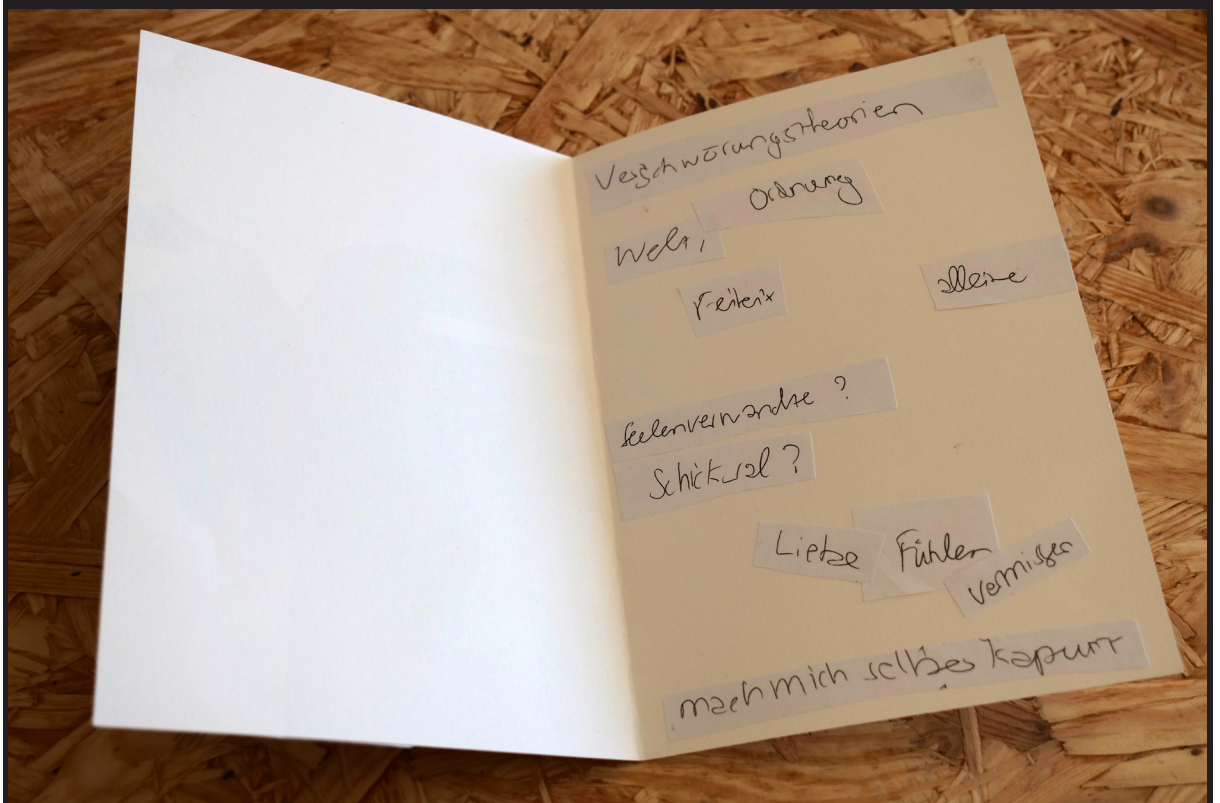 Verschwörungstheorien
Ordnung
Welt,
alleine
Seelenverwandte ?
Schicksal ?
Liebe Fühlen
vermissen
mach mich selbst kaputt